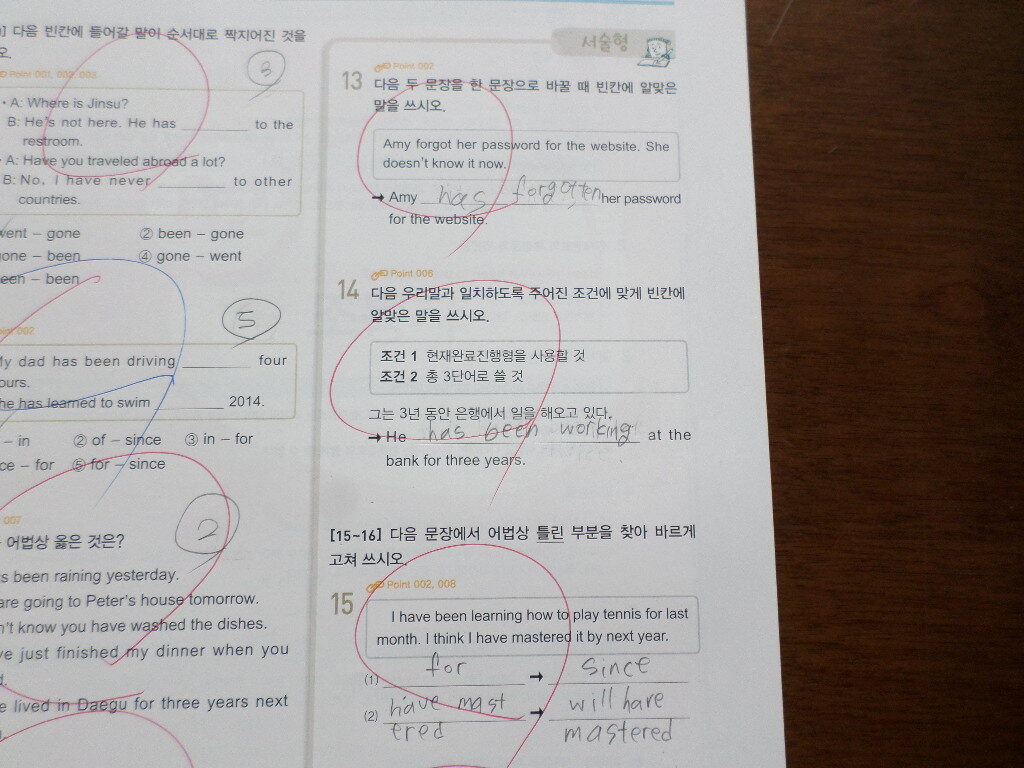 다음 빈칸에 들어갈 말이 순서대로 짝지어진 것을
오.
Point 001, 002, 003
3
• A: Where is Jinsu?
B: He's not here. He has ________ to the
restroom.
A: Have you traveled abroad a lot?
B: No, I have never ________ to other
countries.
went – gone ② been – gone
gone – been ④ gone – went
been – been
002
5
My dad has been driving ________ four
ours.
he has learned to swim ________ 2014.
– in ② of – since ③ in – for
ce – for ⑤ for – since
007
2
어법상 옳은 것은?
s been raining yesterday.
are going to Peter's house tomorrow.
n't know you have washed the dishes.
ve just finished my dinner when you
d.
e lived in Daegu for three years next
서술형
Point 002
13 다음 두 문장을 한 문장으로 바꿀 때 빈칸에 알맞은
말을 쓰시오.
Amy forgot her password for the website. She
doesn't know it now.
➞ Amy has forgotten her password
for the website.
Point 006
14 다음 우리말과 일치하도록 주어진 조건에 맞게 빈칸에
알맞은 말을 쓰시오.
조건 1 현재완료진행형을 사용할 것
조건 2 총 3단어로 쓸 것
그는 3년 동안 은행에서 일을 해오고 있다.
➞ He has been working at the
bank for three years.
[15~16] 다음 문장에서 어법상 틀린 부분을 찾아 바르게
고쳐 쓰시오.
Point 002, 008
15 I have been learning how to play tennis for last
month. I think I have mastered it by next year.
(1) for ➞ since
(2) have mast ➞ will have
ered mastered